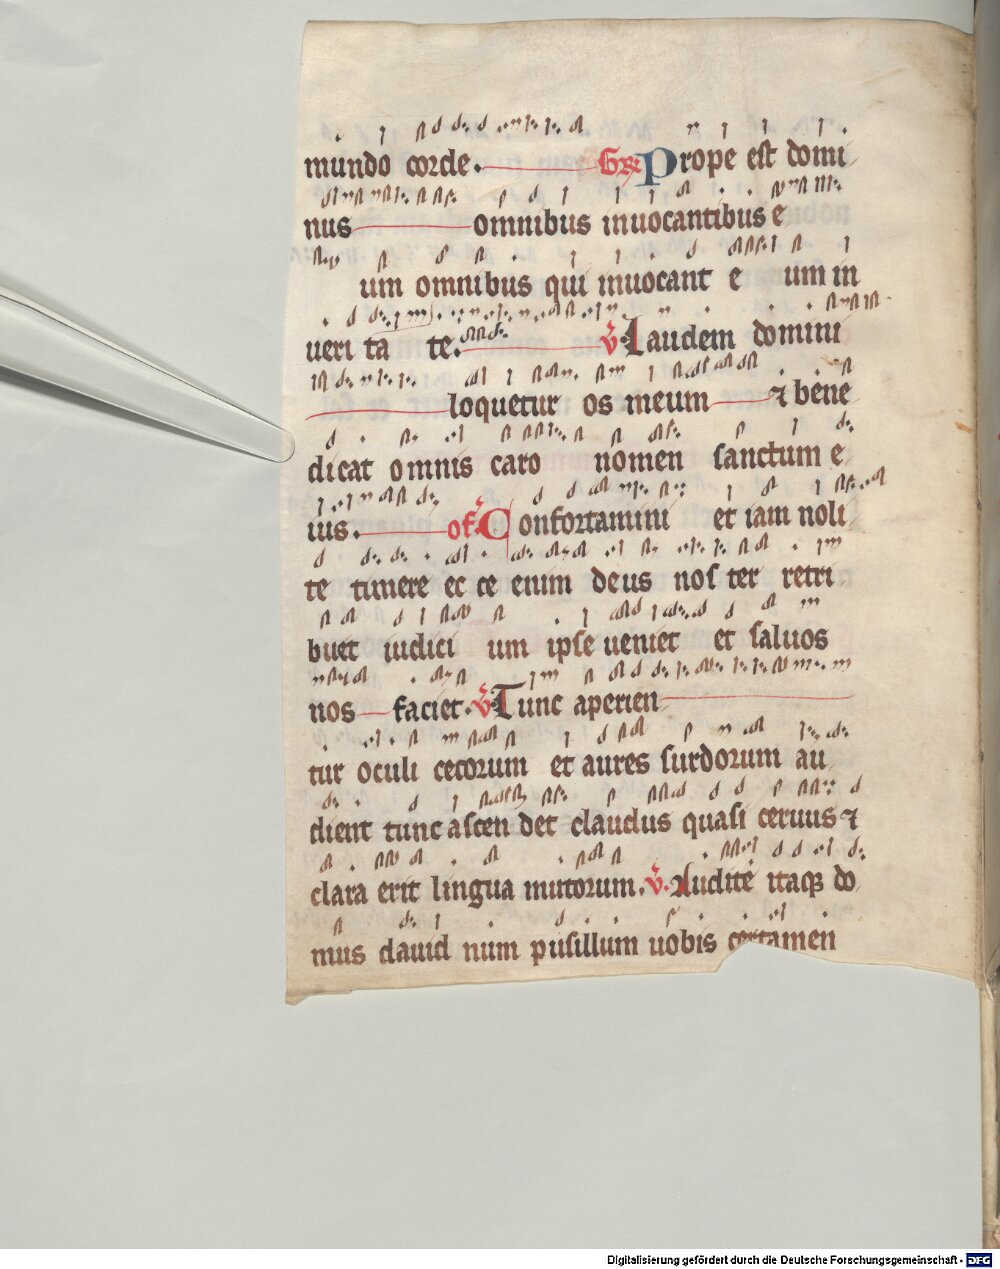 mundo corde. Gr Prope est domi
nus omnibus inuocantibus e
um omnibus qui inuocant e um in
ueri ta te. V Laudem domini
loquetur os meum & bene
dicat omnis caro nomen sanctum e
ius. of. Confortamini et iam noli
te timere ec ce enim deus nos ter retri
buet iudici um ipse ueniet et saluos
nos faciet. V Tunc aperien
tur oculi cecorum et aures surdorum au
dient tunc ascen det claudus quasi ceruus &
clara erit lingua mutorum. V. Audite itaq; do
mus dauid num pusillum uobis certamen
Digitalisierung gefördert durch die Deutsche Forschungsgemeinschaft - DFG